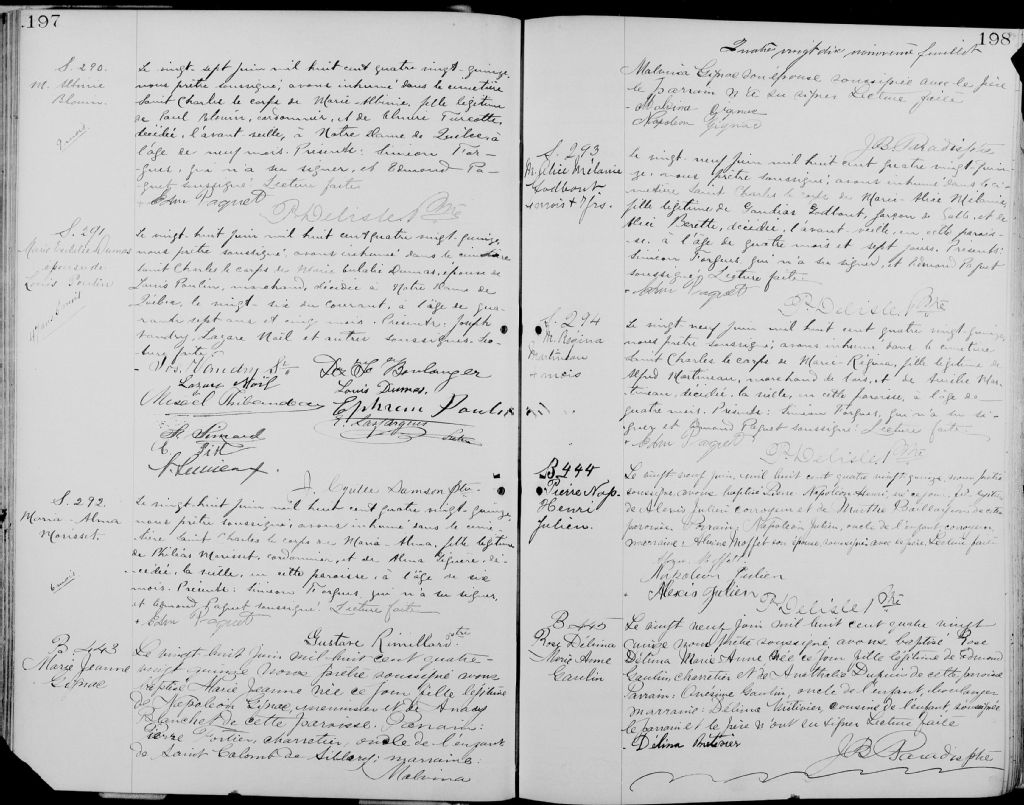 197
S. 290.
M. Albinie
Blouin.
9 mois
Le vingt sept juin mil huit cent quatre vingt-quinze,
nous prêtre soussigné, avons inhumé dans le cimetière
Saint Charles le corps de Marie-Albinie, fille légitime
de Paul Blouin, cordonnier, et de Elmire Turcotte,
décédée, l'avant veille, à Notre Dame de Québec, à
l'âge de neuf mois. Présents: Simeon Far-
gues, qui n'a su signer, et Edmond Pa-
quet soussigné. Lecture faite
Edm Paquet
P. Delisle Ptre
S. 291.
Marie Eulalie Dumas
épouse de
Louis Poulin
47 ans 5 mois
Le vingt-huit juin mil huit cent quatre vingt-quinze,
nous prêtre soussigné, avons inhumé dans le cimetière
Saint Charles le corps de Marie Eulalie Dumas, épouse de
Louis Poulin, marchand, décédée à Notre Dame de
Québec, le vingt-six du courant, à l'âge de qua-
rante sept ans et cinq mois. Présents: Joseph
Vandry, Lazare Noël et autres soussignés. Lec-
ture faite.
Jos. Vandry
Lazare Noël
Louis Dumas.
Ephrem Poulin
S. 292.
Maria-Alma
Mousset.
6 mois
Le vingt-huit juin mil huit cent quatre vingt-quinze,
nous prêtre soussigné, avons inhumé dans le cime-
tière Saint Charles le corps de Maria-Alma, fille légitime
de Philéas Mousset, cordonnier, et de Alma Légaré, dé-
cédée, la veille, en cette paroisse, à l'âge de six
mois. Présents: Simeon Fargues, qui n'a su signer,
et Edmond Paquet soussigné. Lecture faite
Edm Paquet
Gustave Rémillard ptre
B 443
Marie Jeanne
Gignac
Le vingt huit juin mil huit cent quatre-
vingt quinze nous prêtre soussigné avons
baptisé Marie Jeanne née ce jour fille légitime
de Napoléon Gignac, menuisier et de Anaïs
Blanchet de cette paroisse. Parrain:
Pierre Fortier, charretier, oncle de l'enfant
de Saint-Colomb de Sillery; marraine:
Malvina
198
Quatre vingt dix neuvième feuillet
Malvina Gignac son épouse soussignée avec le père
le parrain n'a su signer Lecture faite
Malvina Gignac
Napoléon Gignac
J B Paradis ptre
S. 293
M. Alice Mélanie
Godbout
4 mois & 7 jrs.
Le vingt neuf juin mil huit cent quatre vingt quin-
ze, nous prêtre soussigné, avons inhumé dans le ci-
metière Saint Charles le corps de Marie-Alice Mélanie,
fille légitime de Gaudias Godbout, garçon de table, et de
décédée, l'avant-veille, en cette parois-
se, à l'âge de quatre mois et sept jours. Présents:
Simeon Fargues, qui n'a su signer, et Edmond Paquet
soussigné. Lecture faite
Edm Paquet
P. Delisle Ptre
S. 294
M. Régina
Martineau
4 mois
Le vingt neuf juin mil huit cent quatre vingt quinze,
nous prêtre soussigné, avons inhumé dans le cimetière
Saint Charles le corps de Marie-Régina, fille légitime de
Alfred Martineau, marchand de bois, et de Amélie Mar-
tineau, décédée, la veille, en cette paroisse, à l'âge de
quatre mois. Présents: Simeon Fargues, qui n'a su si-
gner et Edmond Paquet soussigné. Lecture faite
Edm Paquet
P. Delisle Ptre
B 444
Pierre Nap.
Henri
Julien.
Le vingt neuf juin, mil huit cent quatre vingt quinze, nous prêtre
soussigné, avons baptisé Pierre Napoléon Henri, né ce jour, fils légitime
de Alexis Julien corroyeur et de Marthe Baillargeon de cette
paroisse. Parrain; Napoléon Julien, oncle de l'enfant, corroyeur,
marraine: Moffet son épouse, soussignés avec le père. Lecture faite
Napoléon Julien
Alexis Julien
P. Delisle Ptre
B 445
Rose Délima
Marie Anne
Gaulin
Le vingt neuf juin mil huit cent quatre vingt
quinze nous prêtre soussigné avons baptisé Rose
Délima Marie-Anne née ce jour fille légitime de Edmond
Gaulin, charretier et de Anathalie Dupuis de cette paroisse
Parrain: Onésime Gaulin, oncle de l'enfant, boulanger
marraine: Délima Métivier, cousine de l'enfant, soussignée
le parrain et le père n'ont su signer Lecture faite
Délima Métivier
J B Paradis ptre